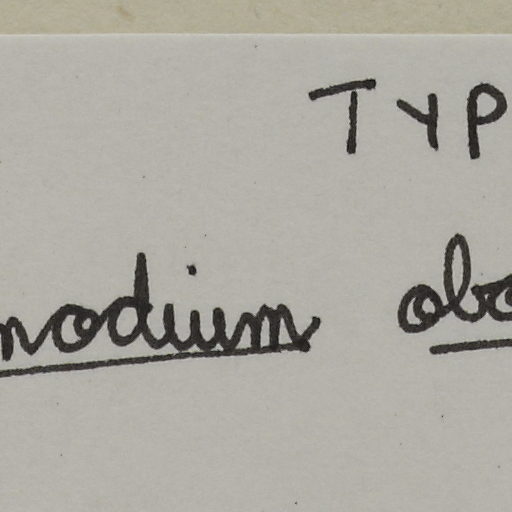 TYP
nodium obo